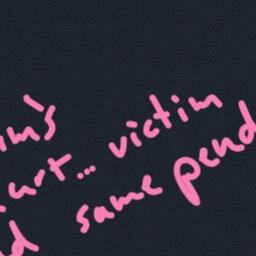 im's
urt... victim
d same pend